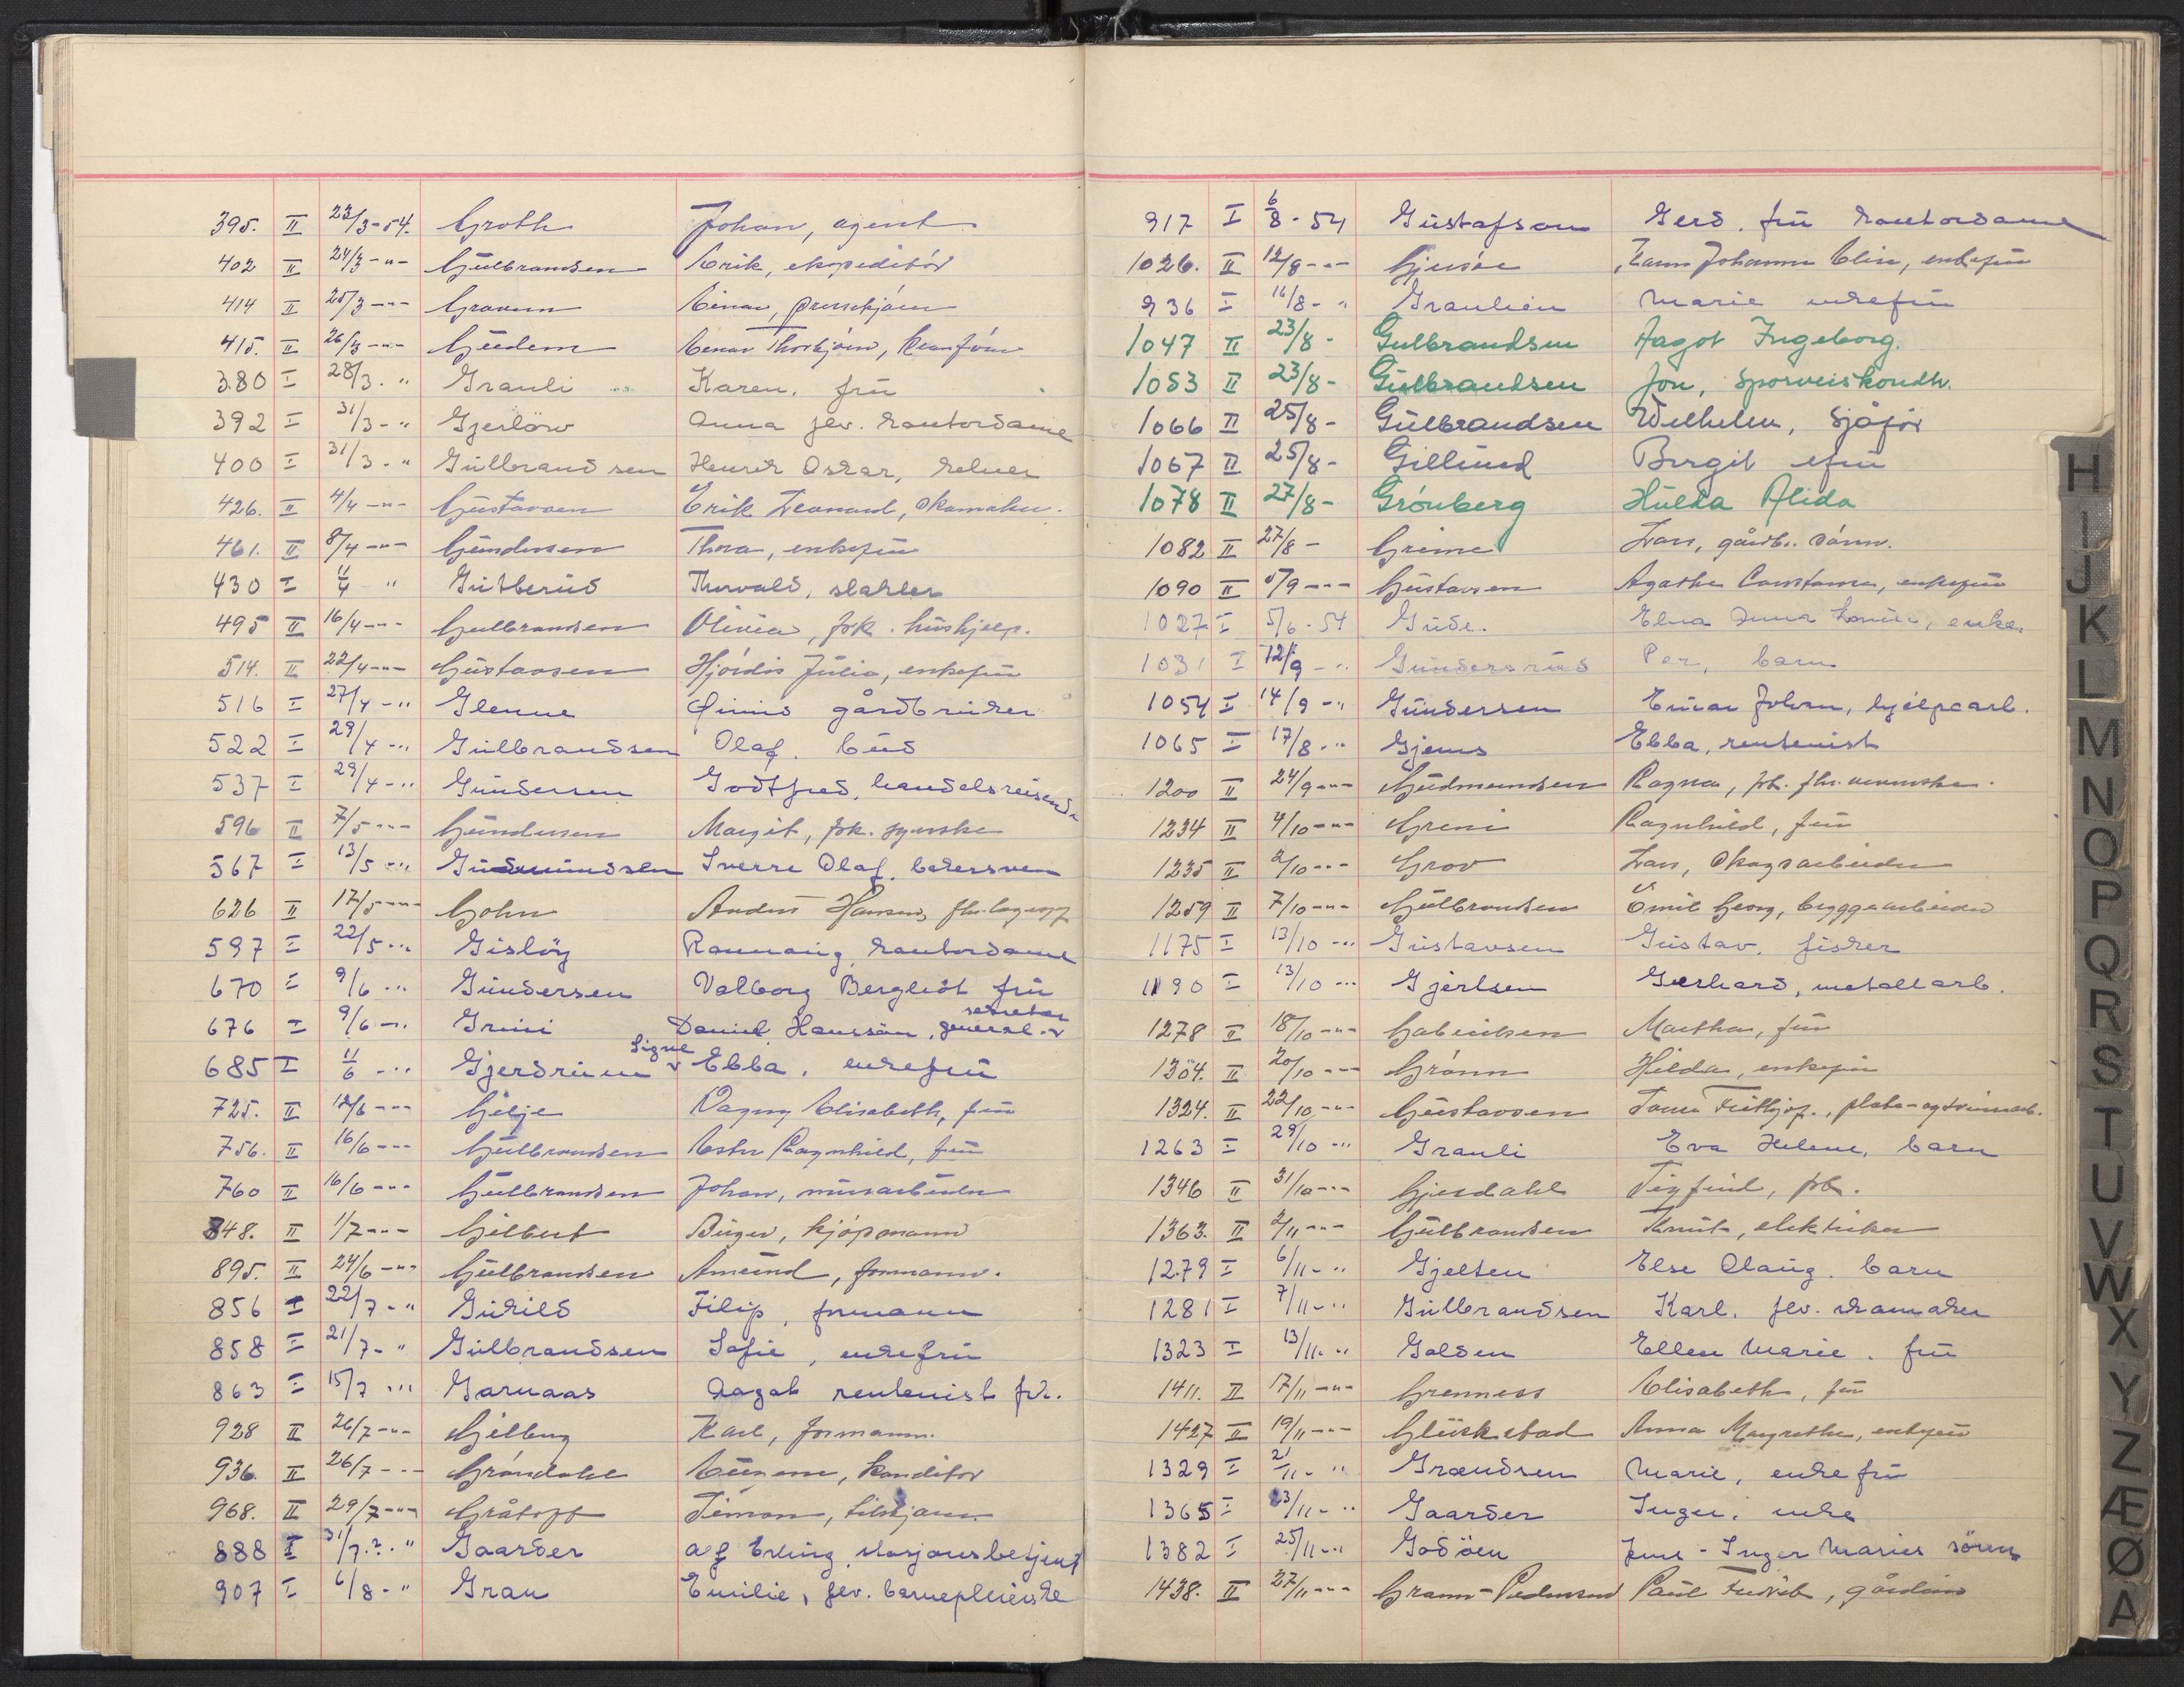 395. II 23/3-54. Groth Johan, agent
402 II 24/3 -"- Gulbrandsen Erik, ekspeditör
414 II 25/3 -"- Gravem Einar,
415. II 26/3 -"- Guldem Einar Thorbjörn,
380 I 28/3. " Grauli Karen. frü
392 I 31/3- " Gjerlöw Anna fev. kontordame
400 I 31/3. " Gülbrandsen Henrik Oskar, kelner
426. II 4/4 -"- Gustavsen Erik Leonard, skomaker.
461. II 8/4 -"- Gundersen Thora, enkefrü
430 I 11/4 " Gütberüd Thorvald, slakter
495 II 16/4 -"- Gulbrandsen Olivia, frk. hüshjelp.
514. II 22/4 -"- Güstavsen Hjördis Jülia, enkefrü
516 I 27/4 -" Glenne gårdbrüker
522 I 29/4 -" Gülbrandsen Olaf. büd
537 I 29/4 -" Gündersen Godtfred, handelsreisende
596 II 7/5 -"- Gundersen Margit, frk. syerske
567 I 13/5 -" Güdmündsen Sverre Olaf. bakersvenn
626 II 17/5 -"- Gohn Anders Hansen,
597 I 22/5 -" Gislöy Rannaüg, kontordame
670 I 9/6 -" Gündersen Valborg Bergliöt frü
676 I 9/6 -" Grini Daniel Hanssön, general-sekretær
685 I 11/6 -" Gjerdrüm Signe Ebba, enkefrü
725. II 12/6 -"- Gilje Dagny Elisabeth, frü
756. II 16/6 -"- Gülbrandsen Ester Ragnhild, frü
760 II 16/6 -"- Gülbrandsen Johan, mürarbeider
848. II 1/7 -"- Gilbert Birger, kjöpmann
895. II 24/6 -"- Gülbrandsen Amünd, formann.
856 I 22/7 -" Gürild Filip, formann
858 I 21/7- " Gülbrandsen Sofie, enkefrü
863 I 15/7 -" Garnaas Aagot rentenist frk.
928 II 26/7 -"- Gilberg Karl, formann.
936. II 26/7 -"- Gröndahl Eugene, konditor
968. II 29/7 -"- Gråtopp Simon,
888 I 31/7.?." Gaarder Erling, stasjonsbetjent
907 I 6/8 - " Gran Emilie, fev. barnepleierske
917 I 6/8 - 54 Güstafson Gerd. frü kontordame
1026. II 12/8 -"- Karen Johanne Elise, enkefrü
936 I 16/8 - " Graulien Marie enkefrü
1047 II 23/8 - Gulbrandsen Aagot Ingeborg.
1053 II 23/8 - Gülbrandsen Jon, Sporveiskondk.
1066 II 25/8 - Gülbrandsen Wilhelm, Sjåför
1067 II 25/8 - Gillünd Birgit efrü
1078 II 27/8 - Grönberg Hülda Alida
1082 II 27/8 - Grime Lars, gårdbr. sönn.
1090 II 5/9 -"- Güstavsen Agathe Constance, enkefrü
1027 I 5/6 - 54 Güde. Elna Anna Lovise, enke.
1031 I 12/9 - " Gündersrüd Per, barn
1054 I 14/9 - " Gündersen Einar Johan, hjelpearb.
1065 I 17/8 - " Gjems Ebba, rentenist
1200 II 24/9 -"- Güdmundsen Ragna, frk.
1234 II 4/10 -"- Greni Ragnhild, frü
1235 II 2/10 -"- Grov Lars, skogsarbeider
1259 II 7/10 -"- Gülbrandsen Emil Georg, bryggearbeider
1175 I 13/10 -" Güstavsen Güstav, fisker
1190 I 13/10 -" Gjertsen Gerhard, metallarb.
1278 II 18/10 -"- Gabrielsen Martha, frü
1304. II 20/10 -"- Grönn Hilda, enkefrü
1324. II 22/10 -"- Güstavsen
1263 I 29/10 -" Grauli Eva Helene, barn
1346 II 31/10 -"- Gjesdahl Sigfrid, frk.
1363. II 2/11 -"- Gülbrandsen Knüt, elektriker
1279 I 6/11 -" Gjelten Else Olaüg. barn
1281 I 7/11 -" Gülbrandsen Karl. fev. skomaker
1323 I 13/11 -" Golden Ellen Marie. frü
1411. II 17/11 -"- Grenness Elisabeth, frü
1427 II 19/11 -"- Glückstad Anna Margrethe, enkefrü
1329 I 21/11 - " Grændsen Marie, enkefrü
1365 I 23/11 - " Gaarder Inger, enke
1382 I 25/11 -" Godöen Jens - Inger Maries sönn
1438. II 27/11 -"- Gramm-Pedersen Paül Fredrik,
H
I
J
K
L
M
N
O
P
Q
R
S
T
U
V
W
X
Y
Z
Æ
Ø
A